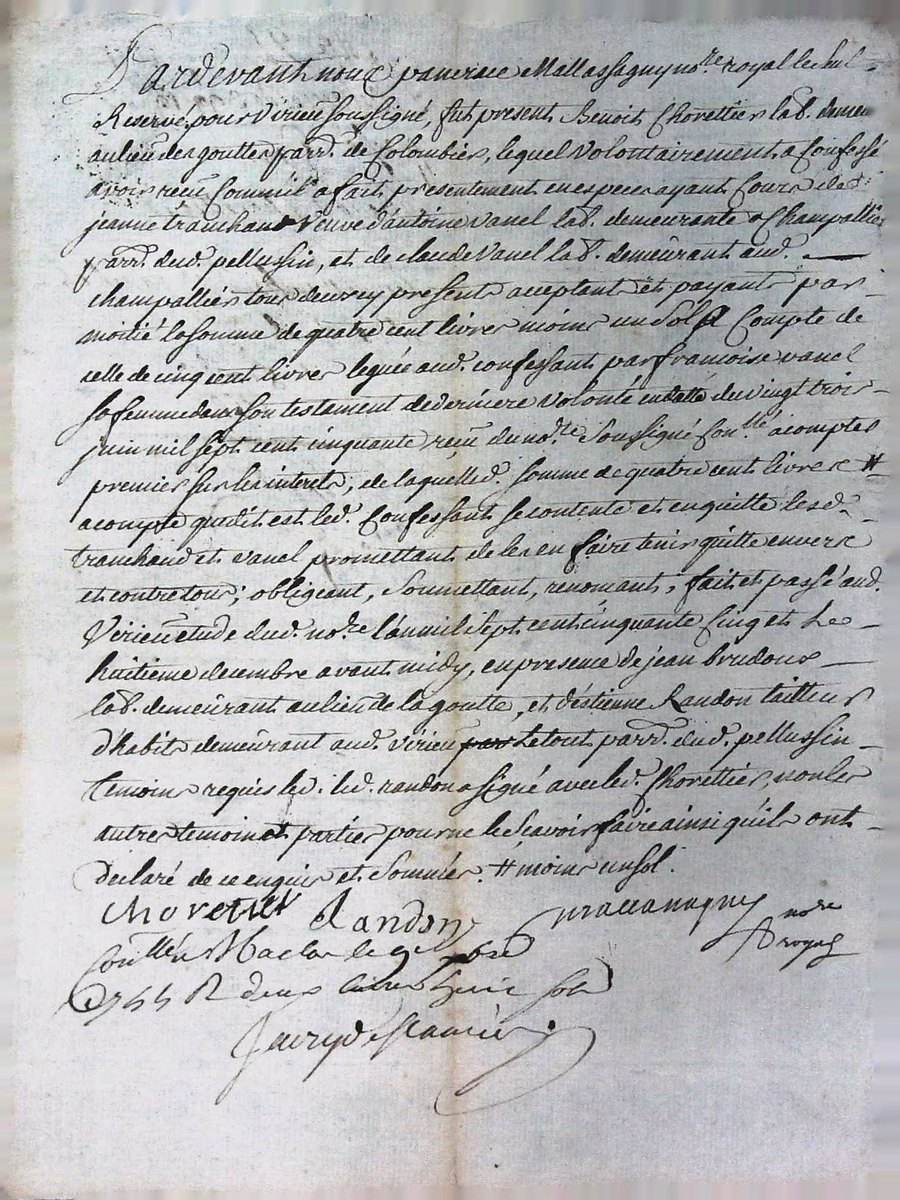 Pardevant nous pancrace Mallassagny no.re royal le seul
Reservé pour virieu soussigné, fut present Benoit Chorettier lab. demeu
au lieu des gouttes parr. de Colombier, lequel volontairement a Confessé
avoir reçu Comme il a fait presentement en especes ayant Cours de
jeanne tranchand veuve d'antoine vanel lab. demeurante a Champallier
parr. dud. pellussin, et de claude vanel lab. demeurant aud.
champallier tous deux icy presents acceptant et payants par
moitié la somme de quatre cent livres moins un sol a Compte de
celle de cinq cent livres leguée aud. confessant par francoise vanel
sa femme dans son testament de derniere volonté en datte du vingt trois
juin mil sept cent cinquante reçu du no.re soussigné Con.llé acomptes
premier sur les interets; de laquelle d. somme de quatre cent livres #
acompte que dit est led. Confessant se contente et en quitte lesd.
tranchand et vanel promettant de les en faire tenir quitte envers
et contre tous; obligeant, soumettant, renonçant; fait et passé aud.
Virieu etude dud. no.re l'an mil sept cent cinquante cinq et le
huitieme decembre avant midy, en presence de jean brudoux
lab. demeurant au lieu de la goutte, et d'estienne Randon tailleur
d'habits demeurant aud. virieu le tout parr. dud. pellussin
temoins requis led. led. randon a signé avec led. Chorettier, non les
autres temoin et parties pour ne le sçavoir faire ainsi qu'ils ont
declaré de ce enquis et sommés. # moins un sol.
Chorettier Randon Mallassagny no.re royal
Con.llé a Maclas le 9e xbre
1755 R deux livres huit sols